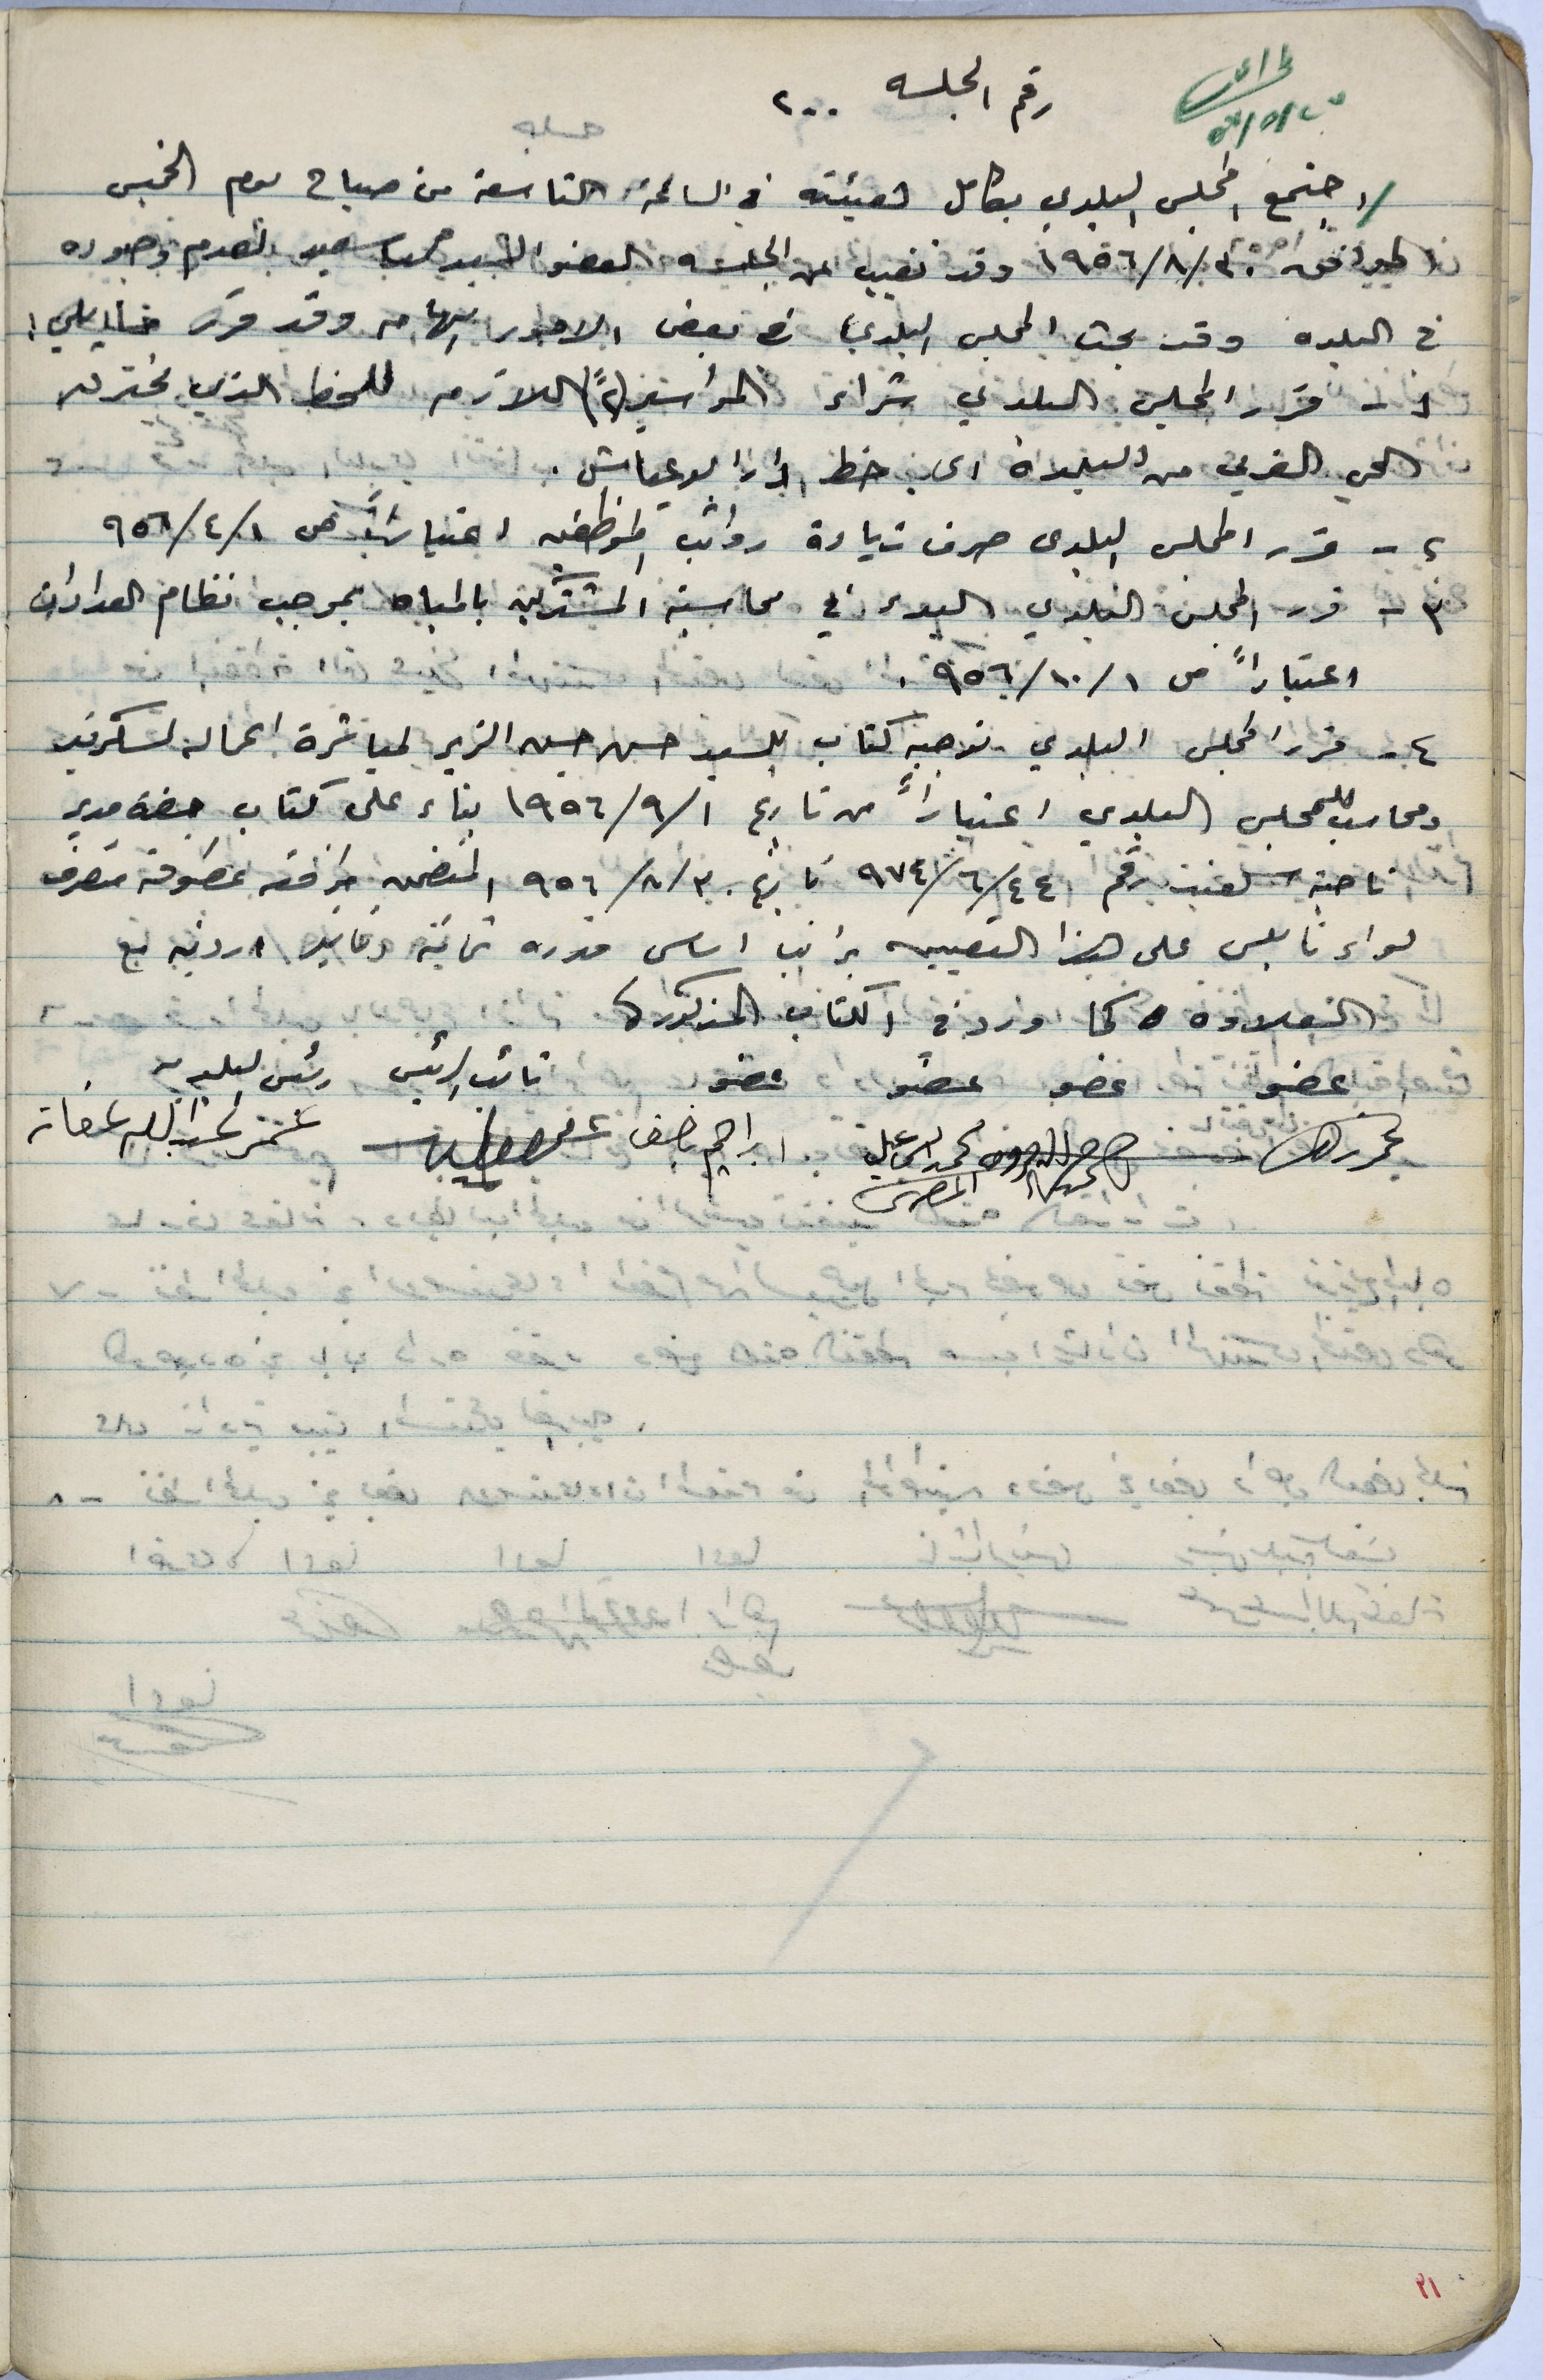 رقم الجلسه ٢٠٠
اجتمع المجلس البلدي بكامل هيئته في الساعة التاسعة من صباح يوم الخميس
الموافق ١٩٥٦/٨/٣٠ وقد تغيب عن الجلسه العضو السيد محمد سعيد لعدم وجوده
في البلده وقد بحث المجلس البلدي في بعض الامور الهامه وقد قرر ما يلي:
١ - قرر المجلس البلدي شراء المواسير (٢ً) اللازمه للخط الذي يخترق
الحي الغربي من البلدة الى خط دار ابو عياش.
٢ - قرر المجلس البلدي صرف زيادة رواتب الموظفين اعتباراً من ٩٥٦/٤/١
٣ - قرر المجلس البلدي البدء في محاسبة المشتركين بالمياه بموجب نظام العدادات
اعتباراً من ٩٥٦/١٠/١.
٤ - قرر المجلس البلدي توجيه كتاب للسيد حسن حسين الزير لمباشرة اعماله لسكرتير
ومحاسب للمجلس البلدي اعتباراً من تاريخ ١٩٥٦/٩/١ بناء على كتاب حضرة مدير
ناحية سلفيت رقم ٩٧٤/٦/٤٤ تاريخ ٩٥٦/٨/٣٠ المتضمن موافقه عطوفة متصرف
لواء نابلس على هذا التعيين براتب اساسي قدره ثمانية دنانير اردنيه مع
العلاوه كما ورد في الكتاب المذكور
عضو عضو عضو عضو نائب الرئيس رئيس البلديه
محمد اسماعيل المصري ابراهيم
٢١